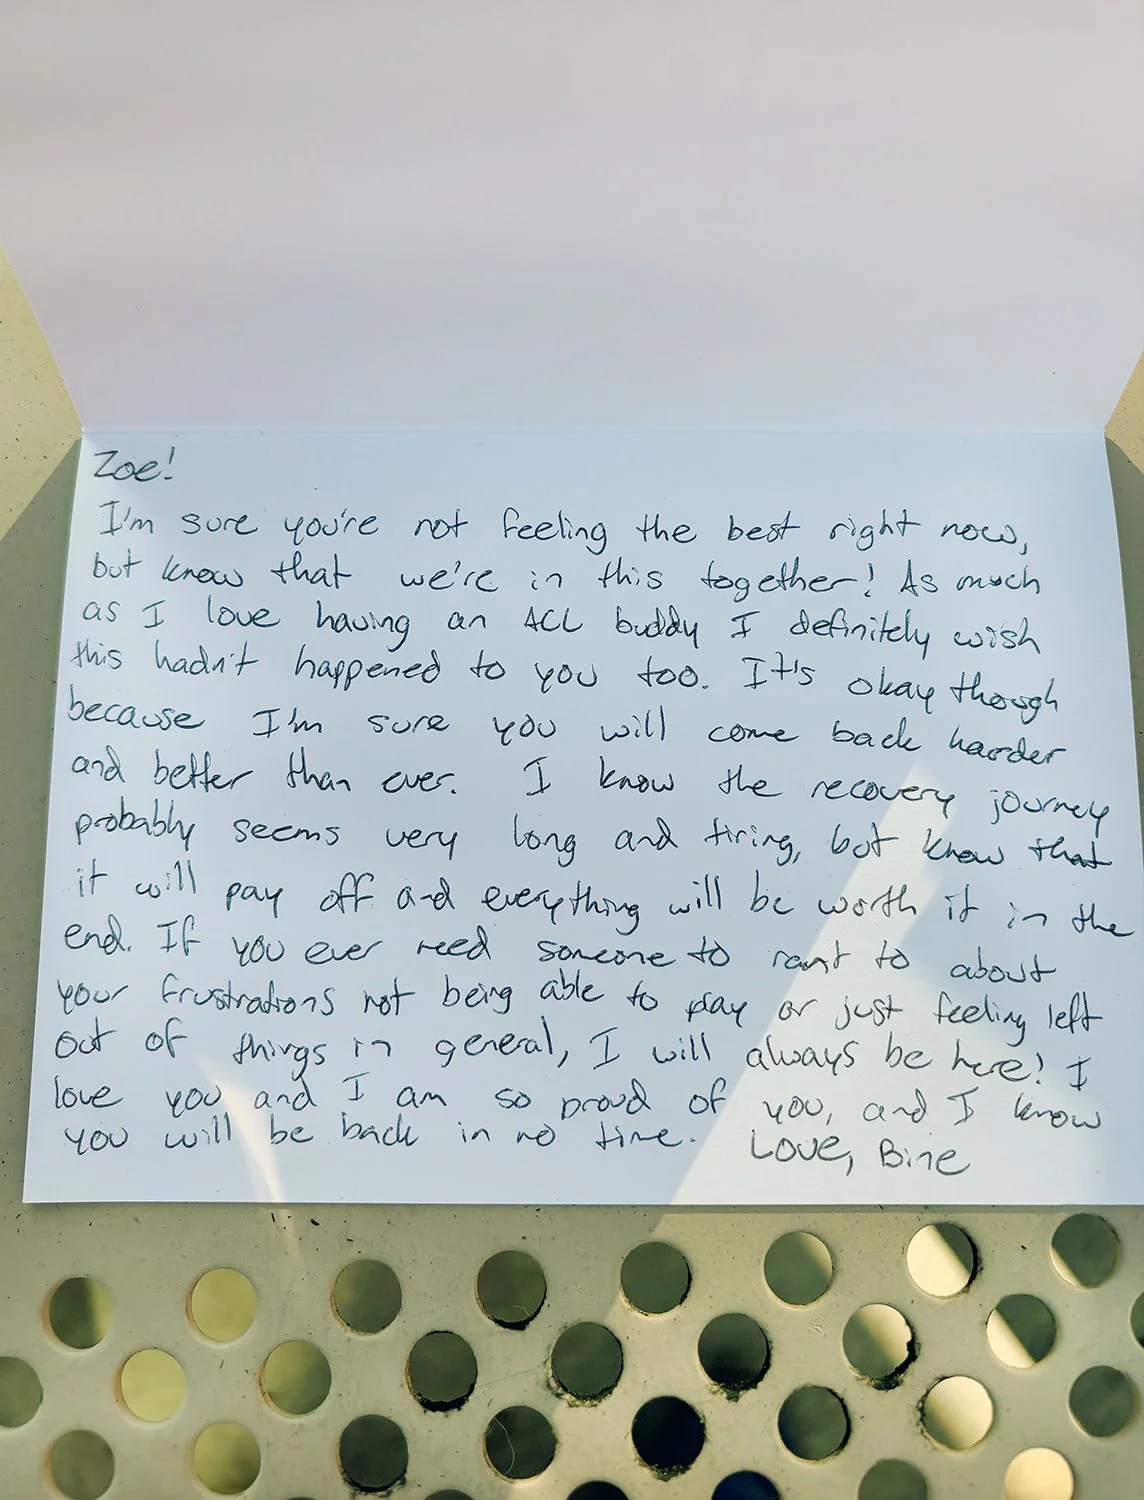 Zoe!
I'm sure you're not feeling the best right now,
but know that we're in this together! As much
as I love having an ACL buddy I definitely wish
this hadn't happened to you too. It's okay though
because I'm sure you will come back harder
and better than ever. I know the recovery journey
probably seems very long and tiring, but know that
it will pay off and everything will be worth it in the
end. If you ever need someone to rant to about
your frustrations not being able to play or just feeling left
out of things in general, I will always be here! I
love you and I am so proud of you, and I know
you will be back in no time. Love, Bine